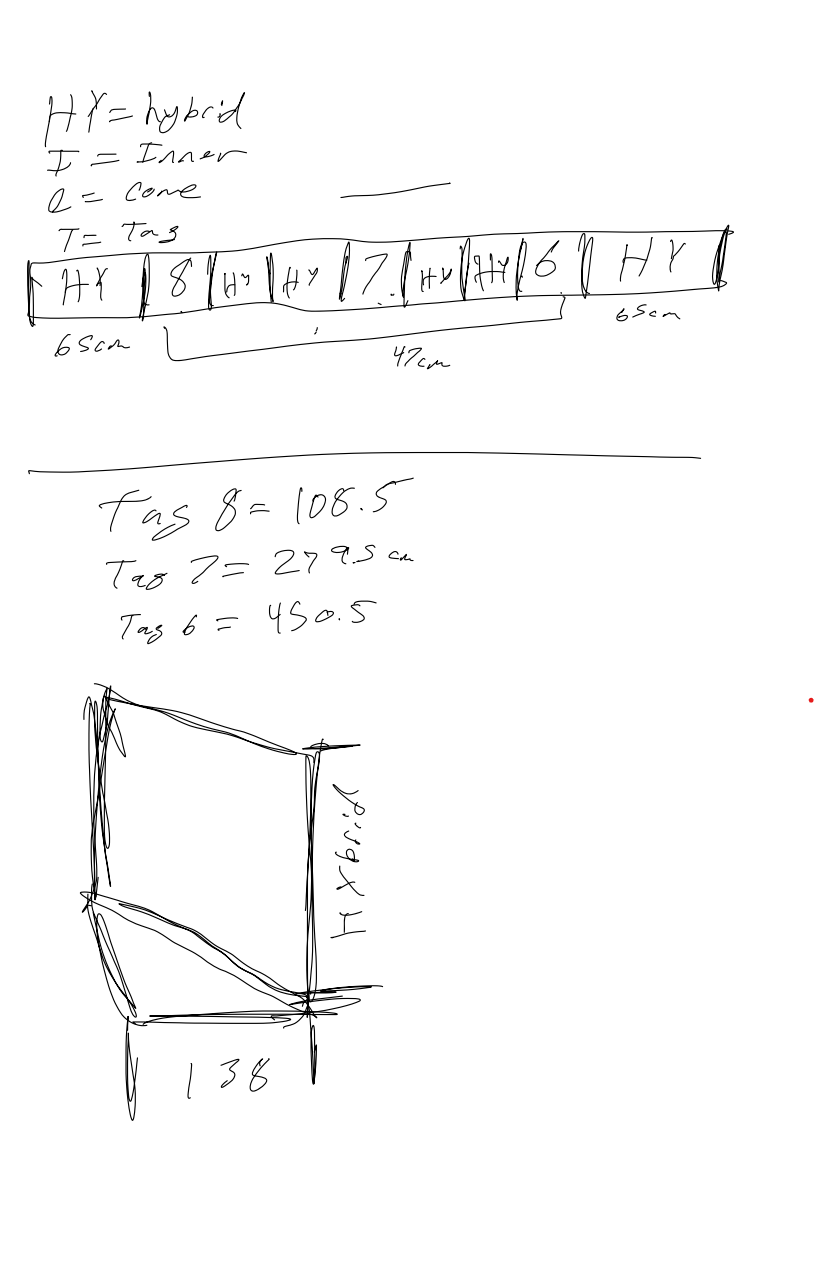 HY = hybrid
I = Inner
C = Cone
T = Tag
HY 8 HY HY 7 HY HY 6 HY
65cm 47cm 65cm
Tag 8 = 108.5
Tag 7 = 279.5 cm
Tag 6 = 450.5
Hybrid
138